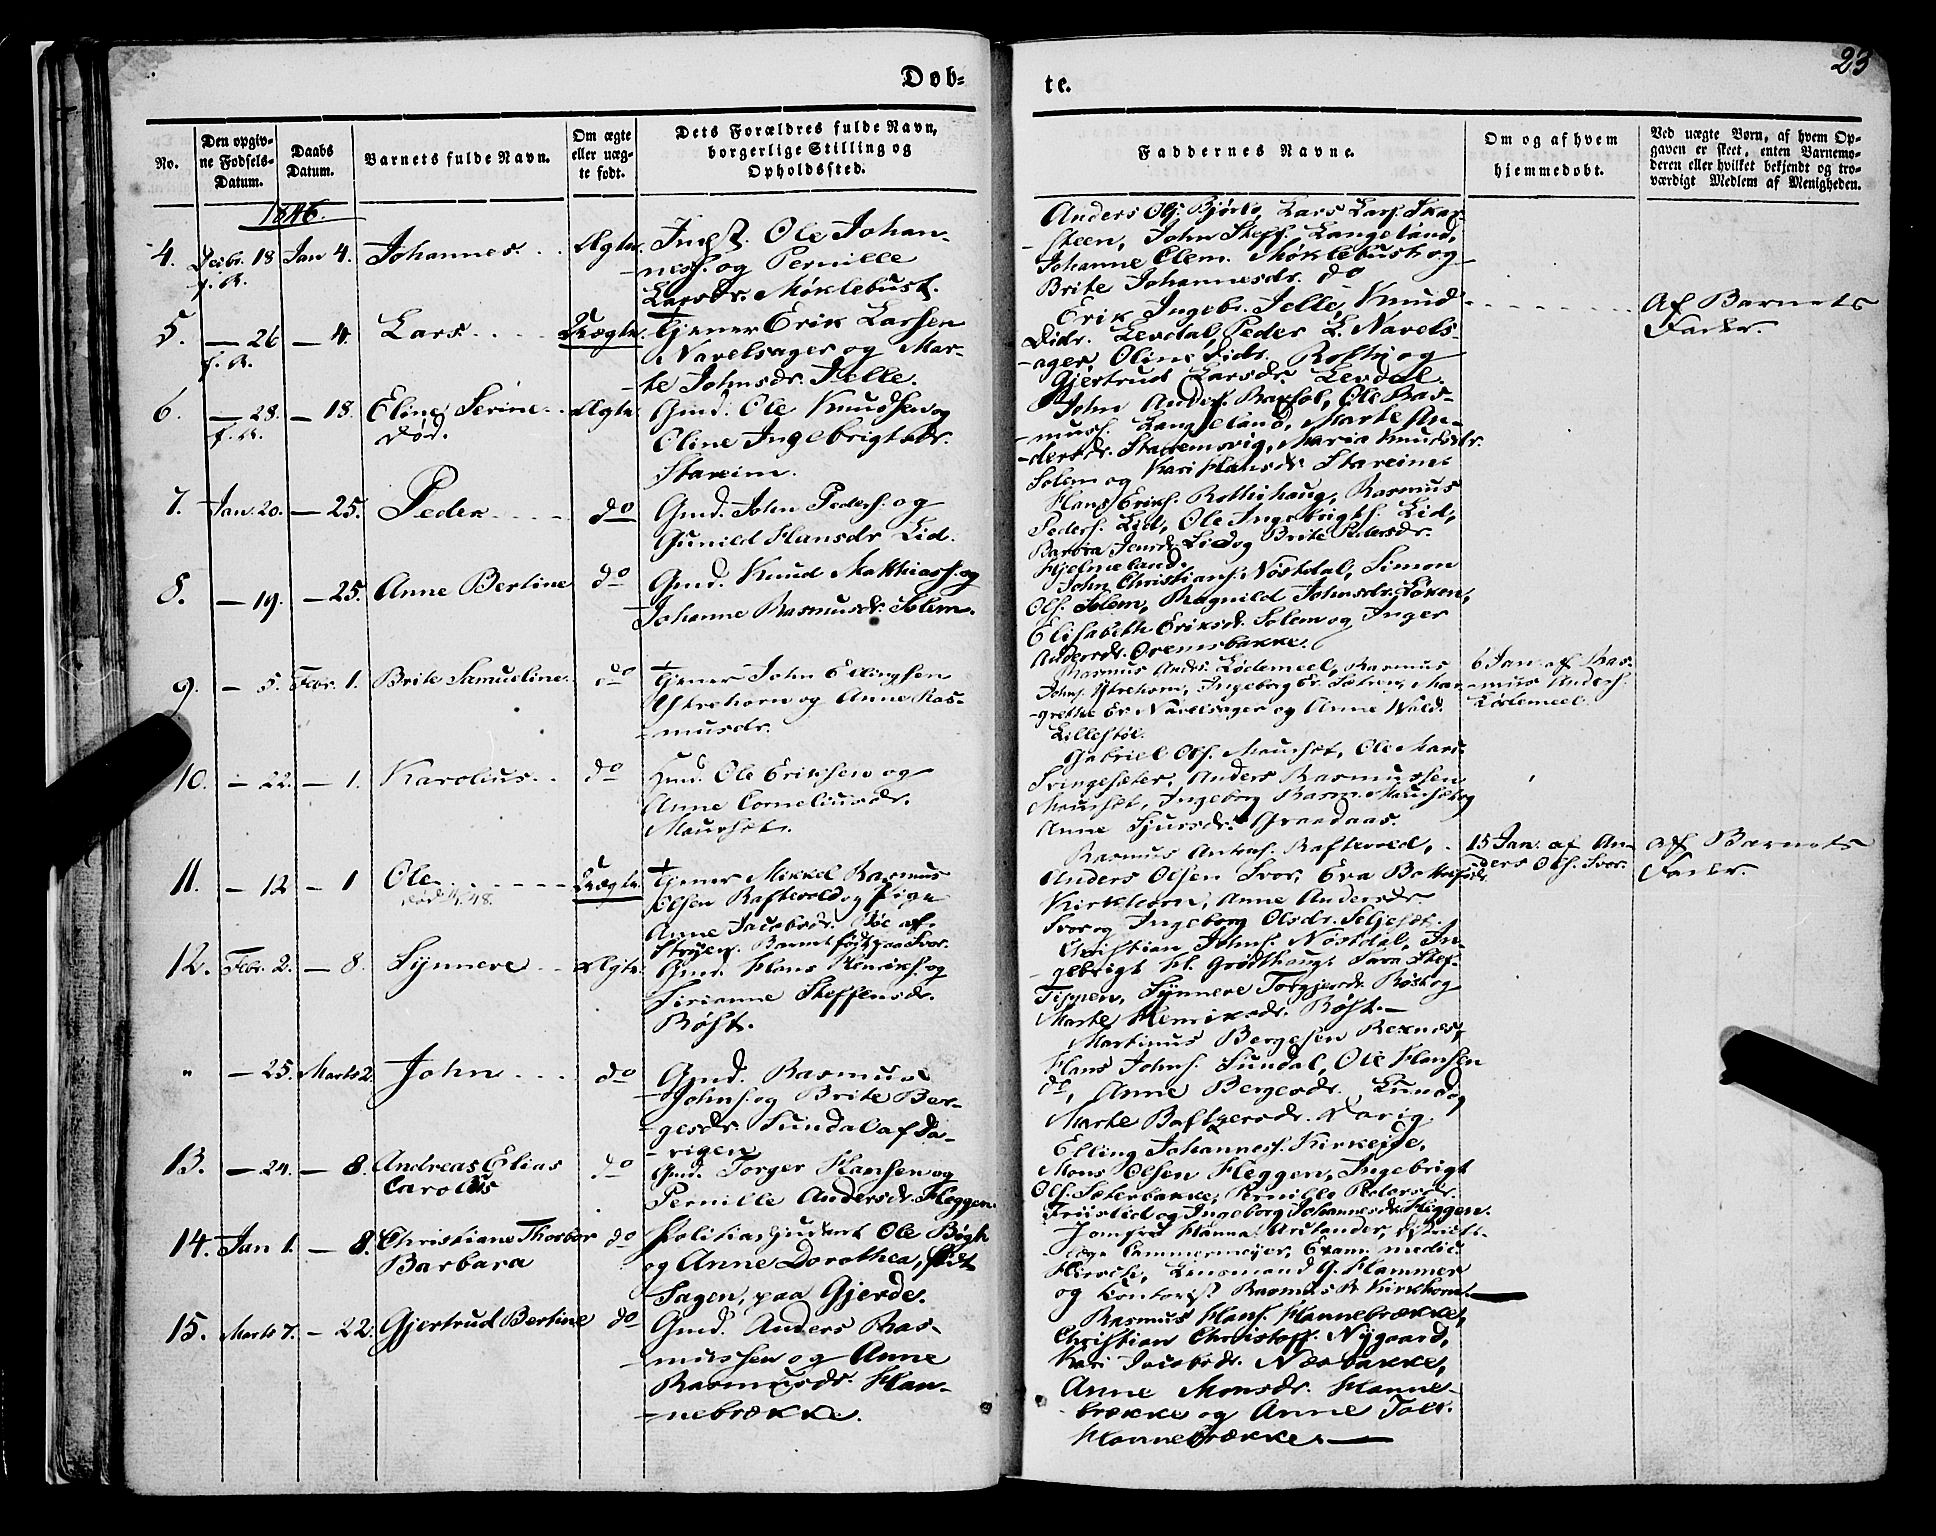 Døb-
te.
23
No.
Den opgiv-
ne Fødsels-
Datum.
Daabs
Datum.
Barnets fulde Navn.
Om ægte
eller uæg-
te født.
Dets Forældres fulde Navn,
borgerlige Stilling og
Opholdssted.
Faddernes Navne.
Om og af hvem
hjemmedøbt.
Ved uægte Børn, af hvem Op-
gaven er skeet, enten Barnemo-
deren eller hvilket bekjendt og tro-
værdigt Medlem af Menigheden.
1846.
4. Decbr. 18 Jan 4. Johannes Ægte. Ole Johan-
f. A. ness. og Pernille
Larsdr. Møklebust.
Anders Ols. Bjørlo, Lars Lars. Skaar-
steen, John Steff. Langeland,
Johanne Clem. Møklebust og
Brite Johannesdr. do
5. — 26 — 4. Lars Uægte. Tjener Erik Larsen
f. A. Navelsager og Mar-
te Johnsdr. Jelle.
Erik Ingebr. Jelle, Knud
Didr. Levdal, Peder L. Navels-
ager, Oline Didr. og
Gjertrud Larsdr. Levdal.
Af Barnets
Fader.
6. — 28. — 18. Eline Serine Ægte. Gmd. Ole Knudsen og
f. A. død. Oline Ingebrigtsdr.
Stareim.
John Anders. Ole Ras-
mus. Langeland, Marte An-
dersdr. Maria Knudsdr.
Solem og Kari Hansdr. Stareim.
7. Jan. 20. — 25. Peder do Gmd. John Peders. og
Gunild Hansdr Lid.
Hans Eriks. Rothihaug, Rasmus
Peders. Lid, Ole Ingebrigts. Lid,
Barbra Jensdr. Lid og Brite Pedersdr.
Hjelmeland.
8. — 19. — 25. Anne Bertine do Gmd. Knud Matthiass. og
Johanne Rasmusdr. Solem.
John Christians. Nøstdal, Simon
Ols. Solem, Ragnild Johnsdr. Løken,
Elisabeth Eriksdr. Solem og Inger
Andersdr. Orensbakke.
9. — 5. Febr. 1. Brite Samueline. do Tjener John Ellingsen
Ytrehorn og Anne Ras-
musdr.
Rasmus Anders. Lødemeel, Rasmus
Johns. Ytrehorn, Ingeborg Er. Sætren, Mar-
grethe Er. Navelsager og Anne Wold.
Lillestøl.
6 Jan. af Ras-
mus Anders.
Lødemeel.
10. — 22. — 1. Karolius do Gmd. Ole Eriksen og
Anne Corneliusdr.
Maurset.
Gabriel Ols. Maurset, Ole Mars.
Svingesæter, Anders Rasmussen
Maurset, Ingeborg Rasm. Maurset og
Anne Sjursdr. Graadaas.
11. — 12 — 1 Ole Uægte. Tjener Mikkel Rasmus
Olsen Raftevold og Pige
Anne Jacobsdr. Bøe af
Stryen. Barnet født paa Svor.
Rasmus Anders. Raftevold,
Anders Olsen Svor, Eva
Kirkhorn, Anne Andersdr.
Svor og Ingeborg Olsdr. Seljeset.
15 Jan. af An-
ders Ols. Svor.
Af Barnets
Fader.
12. Febr. 2. — 8. Synneve Ægte. Gmd. Hans Henriks. og
Sirianne Steffensdr.
Røst.
Christian Johns. Nøstdal, In-
gebrigt H. Grodthaug, Sara Stef.
Tippen, Synneve Torgjersdr. Røst og
Marte Henriksdr. Røst. —
" — 25. Marts 2. John do Gmd. Rasmus
Johns. og Brite Ber-
gesdr. Sundal af Da-
vigen
Martinus Bergesen Rexnes,
Hans Johns. Sundal, Ole Hansen
do, Anne Bergesdr. Lund og
Marte Baltzersdr. Davig.
13. — 24. — 8. Andreas Elias do Gmd. Torger Hansen og
Carolus Pernille Andersdr. Heggen.
Elling Johannes. Kirkeide,
Mons Olsen Heggen, Ingebrigt
Ols. Sæterbakke, Pernille Pedersdr.
Friislid og Ingeborg Johannesdr. Heggen.
14. Jan 1. — 8. Christiane Thorbor do Politiadjudant Ole Bøgh
Barbara og Anne Dorothea, født
Sagen, paa Gjerde.
Jomfru Hanna Arstander, Distrikts-
læge Cammermeyer, Exam. medic:
Hirsch, Lensmand G. Hammer
og Rasmus R. Kirkhorn.
15. Marts 7. — 22. Gjertrud Bertine do Gmd. Anders Ras-
mussen og Anne
Rasmusdr. Han-
nebrække.
Rasmus Hans. Hannebrække,
Christian Christoff. Nygaard,
Kari Jacobsdr. Nesbakke,
Anne Monsdr. Hanne-
brække og Anne
Hannebrække —